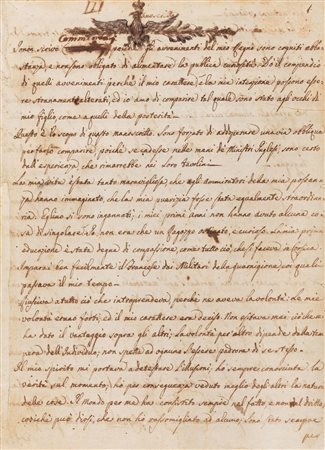 Commentarj
Io non scrivo
gli avvenimenti del mio Regno sono cogniti abba-
stanza e non sono obligato di alimentare la publica curiosità. Do il compendio
di questi avvenimenti perchè il mio carattere, e la mia intenzione possono esse-
re stranamente alterati, ed io amo di comparire tal quale sono stato agli occhj di
mio figlio come a quelli della posterità.
Questo è lo scopo di questo manoscritto. Sono forzato di adoperare una via obliqua
per farlo comparire poichè se cadesse nelle mani de' Ministri Inglesi, sono certo
dall'esperienza che rimarrebbe nei loro Tavolini.
La mia vita è stata tanto maravigliosa che gli ammiratori della mia possan-
za hanno immaginato che la mia puerizia fosse stata egualmente straordina-
ria. Eglino si sono ingannati; i miei primi anni non hanno avuto alcuna co-
sa di singolare. Io non era che un Ragazzo ostinato, e curioso. La mia prima
educazione è stata degna di compassione, come tutto ciò, che si faceva in Corsica
Imparai ben facilmente il Francese dai Militari della guarnigione, coi quali
passava il mio tempo.
Riusciva a tutto ciò che intraprendeva, perchè ne aveva la volontà: Le mie
volontà erano forti, ed il mio carattere era deciso. Non esitava mai; ciò che m'
ha dato il vantaggio sopra gli altri; La volontà per altro dipende dalla tem-
pera dell'Individuo; non spetta ad ognuno d'essere padrone di se stesso.
Il mio Spirito mi portava a detestare l'illusioni; ho sempre conosciuta la
verità sul momento; ho per conseguenza veduto meglio degli altri la natura
delle cose. Il Mondo per me ha consistito sempre nel fatto e non nel dritto,
cosichè può dirsi, che non ho rassomigliato ad alcuno; Sono stato sempre
per